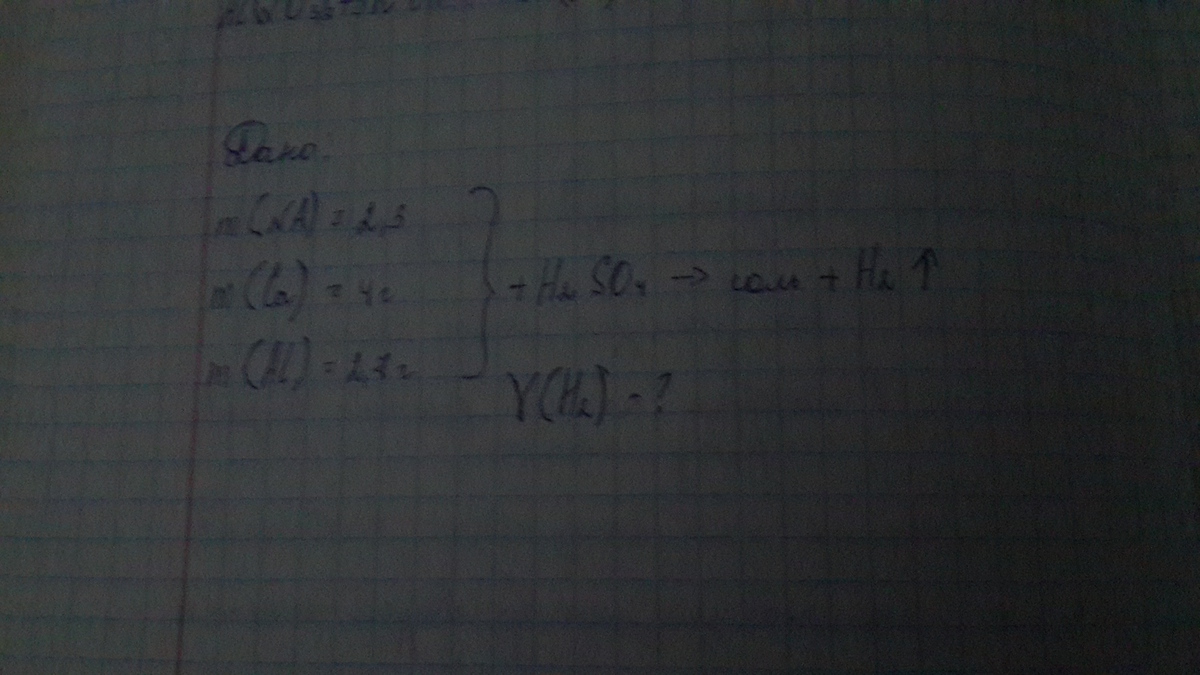 Дано:
m(Na) = 2,3
m(Ca) = 4г
m(Al) = 2,7г
+ H₂SO₄ → соль + H₂ ↑
V(H₂) - ?